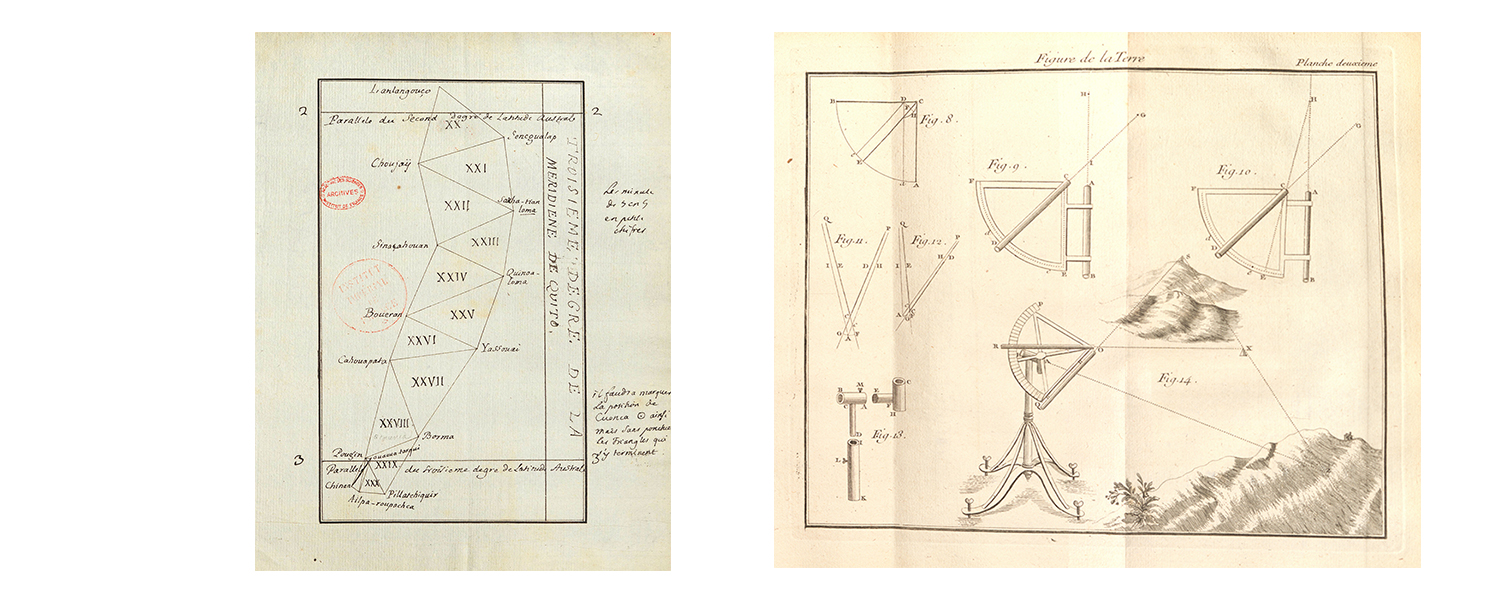 Lanlangouço
2
2
Parallele du Second degre de Latitude Australe
XX
Senegualap
Choujaÿ
XXI
TROISIEME DEGRE DE LA
MERIDIENE DE QUITO.
ARCHIVES
Les minute
de 5 en 5
en petits
chifres
XXII
loma
XXIII
Sinazahouan
XXIV
Quinoa-
loma
Boueran
XXV
XXVI
Yassouai
Cahouapata
XXVII
il faudra marquer
La position de
Cuenca ⊙ ainsi
mais sans ponctuer
les triangles qui
s'y terminent
XXVIII
Borma
Pougin
3
3
Parallele du troisieme degre de Latitude Australe
XXIX
Chinan
XXX
Pillatchiquir
Ailpa-roupachca
Figure de la Terre
Planche deuxieme
B D C
F
H
Fig. 8.
E
d A
H
G
I
Fig. 9.
F C A
d
D
E B
H
G
Fig. 10.
F C A
d
D
E B
Q P
Fig. 11.
I E D H
C
O A F
Q P
Fig. 12.
I E D H
C
A
P
R O
A
Q
S
X
Fig. 14.
M
B A
D
E C
F
H
Fig. 13.
I
L
K